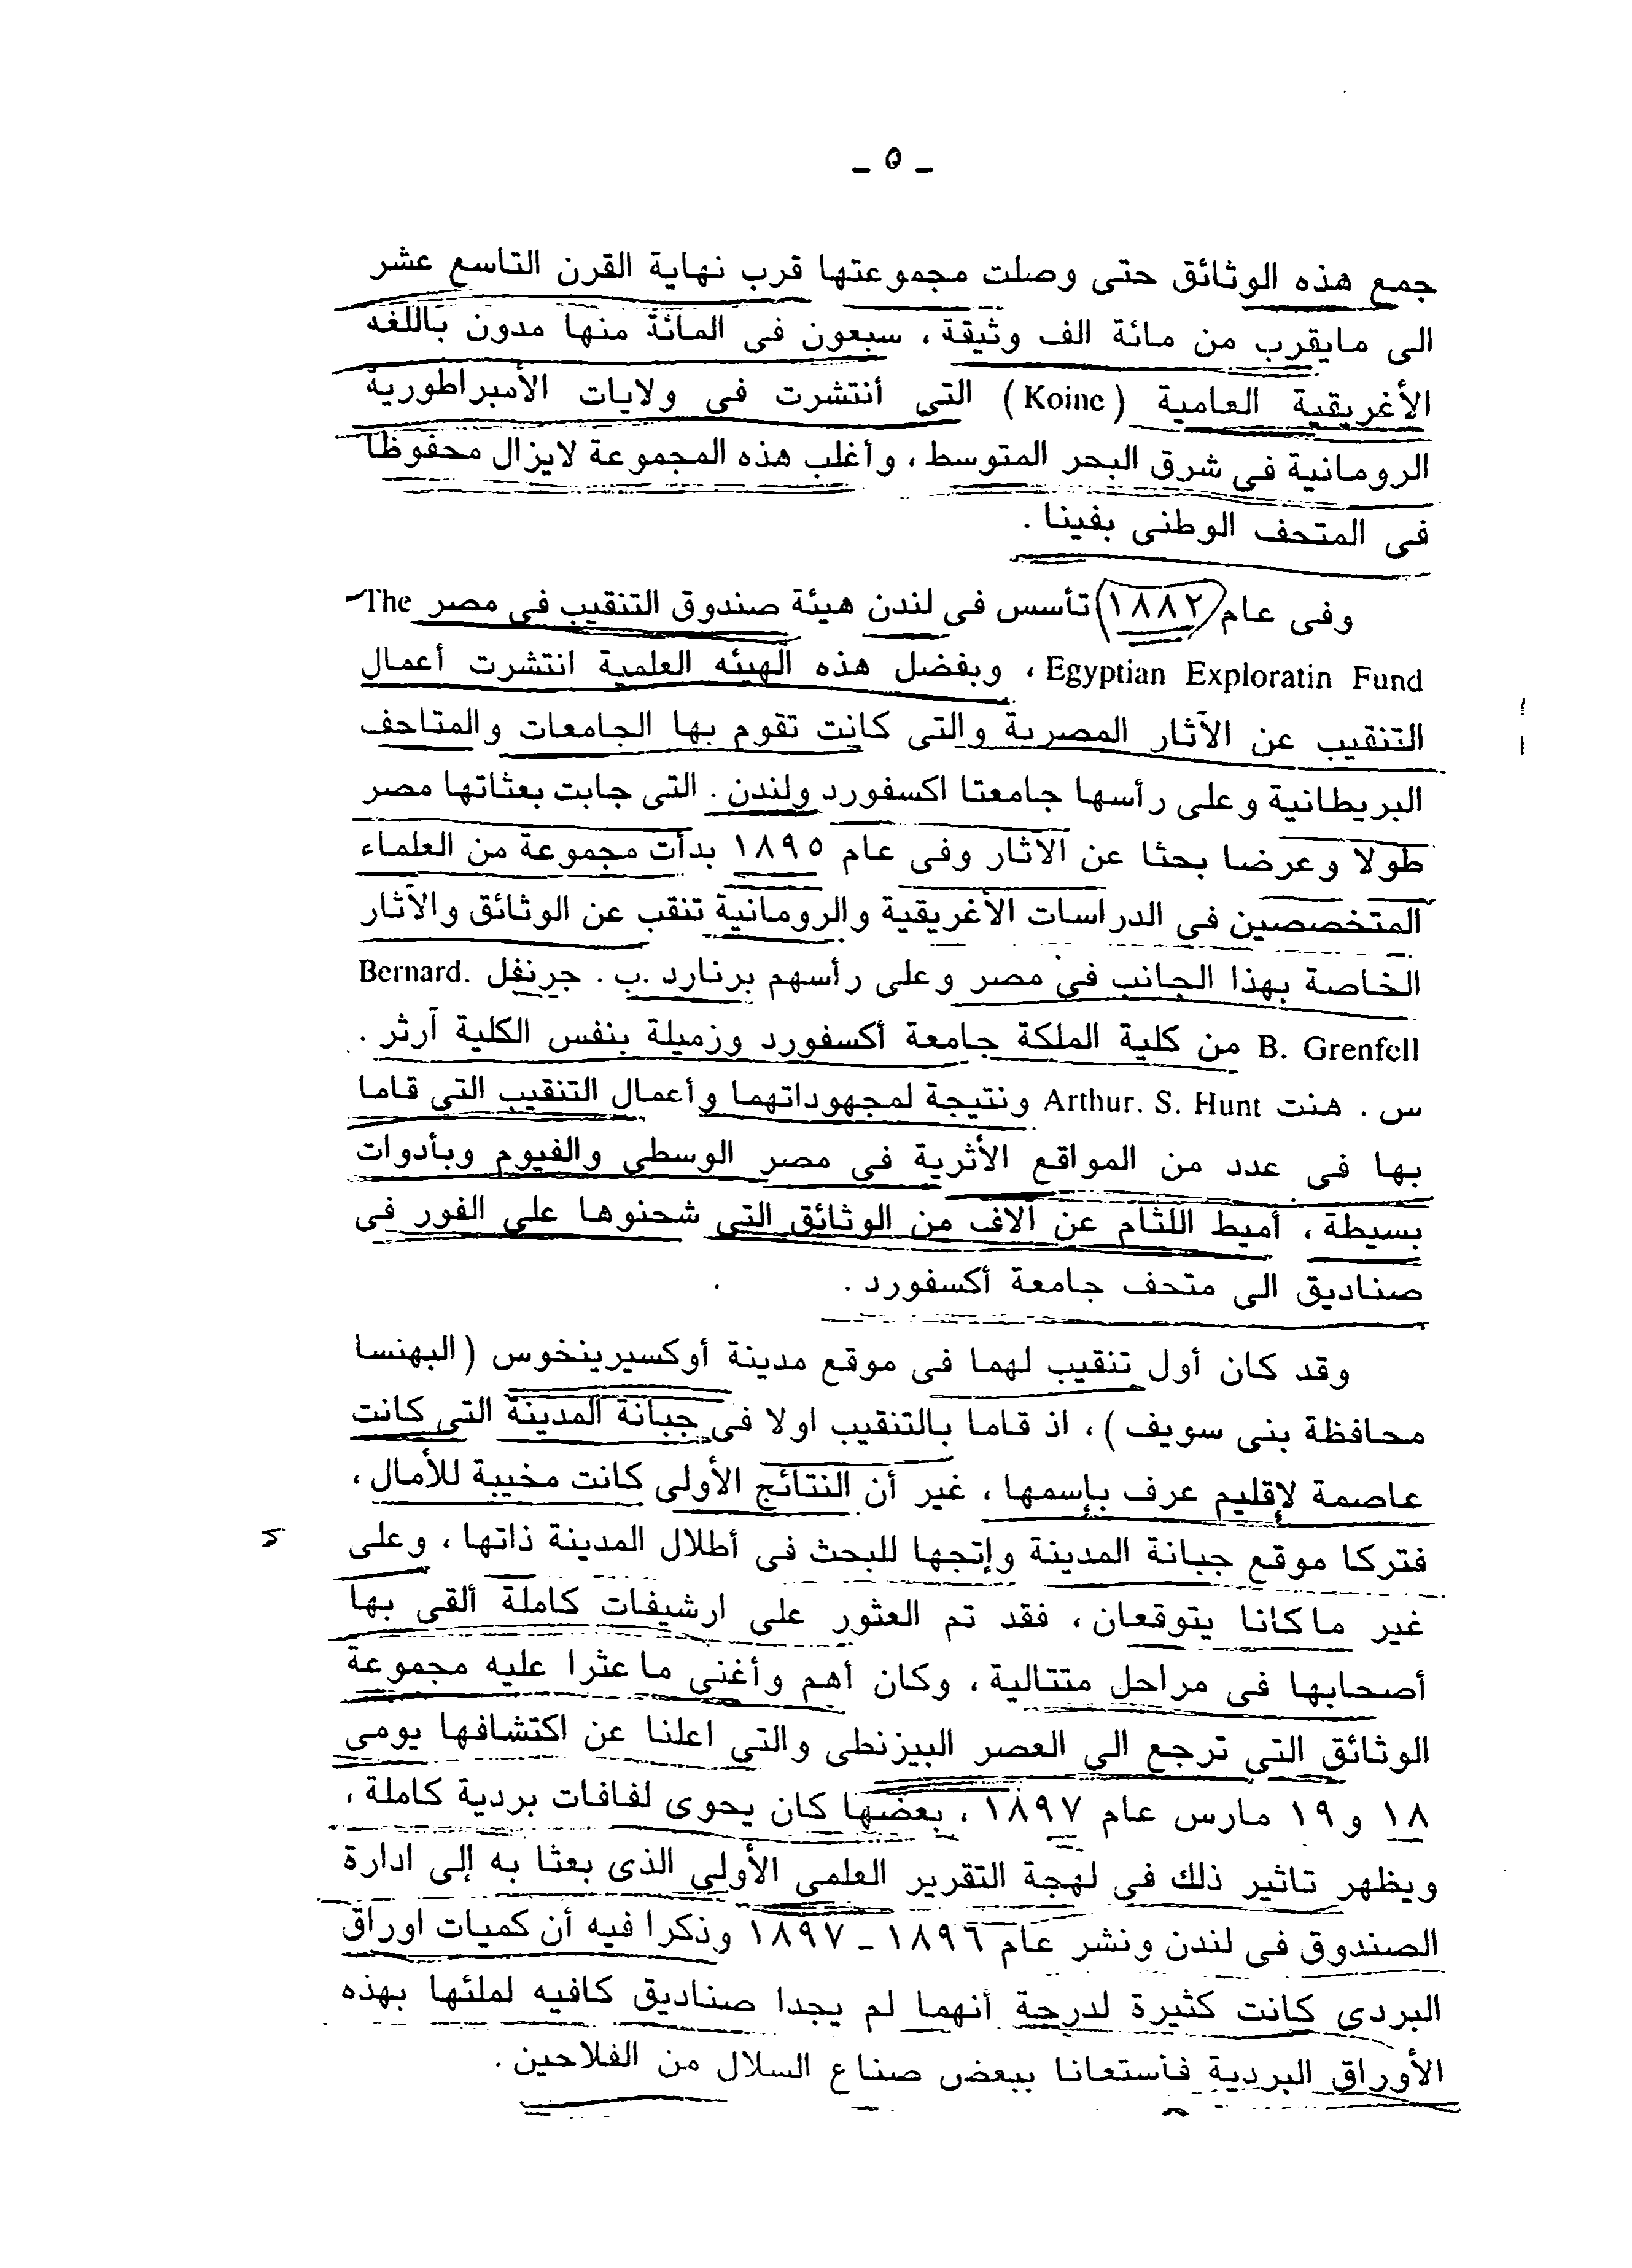 ـ ٥ ـ
جمع هذه الوثائق حتى وصلت مجموعتها قرب نهاية القرن التاسع عشر
الى مايقرب من مائة الف وثيقة ، سبعون فى المائة منها مدون باللغه
الأغريقية العامية (Koine) التى أنتشرت فى ولايات الأمبراطورية
الرومانية فى شرق البحر المتوسط ، وأغلب هذه المجموعة لايزال محفوظا
فى المتحف الوطنى بفينا .
وفى عام (١٨٨٢) تأسس فى لندن هيئة صندوق التنقيب فى مصر The
Egyptian Exploratin Fund ، وبفضل هذه الهيئه العلمية انتشرت أعمال
التنقيب عن الآثار المصرية والتى كانت تقوم بها الجامعات والمتاحف
البريطانية وعلى رأسها جامعتا اكسفورد ولندن . التى جابت بعثاتها مصر
طولا وعرضا بحثا عن الاثار وفى عام ١٨٩٥ بدأت مجموعة من العلماء
المتخصصين فى الدراسات الأغريقية والرومانية تنقب عن الوثائق والآثار
الخاصة بهذا الجانب فى مصر وعلى رأسهم برنارد .ب . جرنفل Bernard.
B. Grenfell من كلية الملكة جامعة أكسفورد وزميلة بنفس الكلية آرثر .
س . هنت Arthur. S. Hunt ونتيجة لمجهوداتهما وأعمال التنقيب التى قاما
بها فى عدد من المواقع الأثرية فى مصر الوسطى والفيوم وبأدوات
بسيطة ، أميط اللثام عن الاف من الوثائق التى شحنوها على الفور فى
صناديق الى متحف جامعة أكسفورد .
وقد كان أول تنقيب لهما فى موقع مدينة أوكسيرينخوس (البهنسا
محافظة بنى سويف) ، اذ قاما بالتنقيب اولا فى جبانة المدينة التى كانت
عاصمة لإقليم عرف بإسمها ، غير أن النتائج الأولى كانت مخيبة للأمال ،
فتركا موقع جبانة المدينة وإتجها للبحث فى أطلال المدينة ذاتها ، وعلى
غير ماكانا يتوقعان ، فقد تم العثور على ارشيفات كاملة ألقى بها
أصحابها فى مراحل متتالية ، وكان أهم وأغنى ماعثرا عليه مجموعة
الوثائق التى ترجع الى العصر البيزنطى والتى اعلنا عن اكتشافها يومى
١٨ و١٩ مارس عام ١٨٩٧ ، بعضها كان يحوى لفافات بردية كاملة ،
ويظهر تاثير ذلك فى لهجة التقرير العلمى الأولى الذى بعثا به إلى ادارة
الصندوق فى لندن ونشر عام ١٨٩٦ ـ ١٨٩٧ وذكرا فيه أن كميات اوراق
البردى كانت كثيرة لدرجة أنهما لم يجدا صناديق كافيه لملئها بهذه
الأوراق البردية فأستعانا ببعض صناع السلال من الفلاحين .